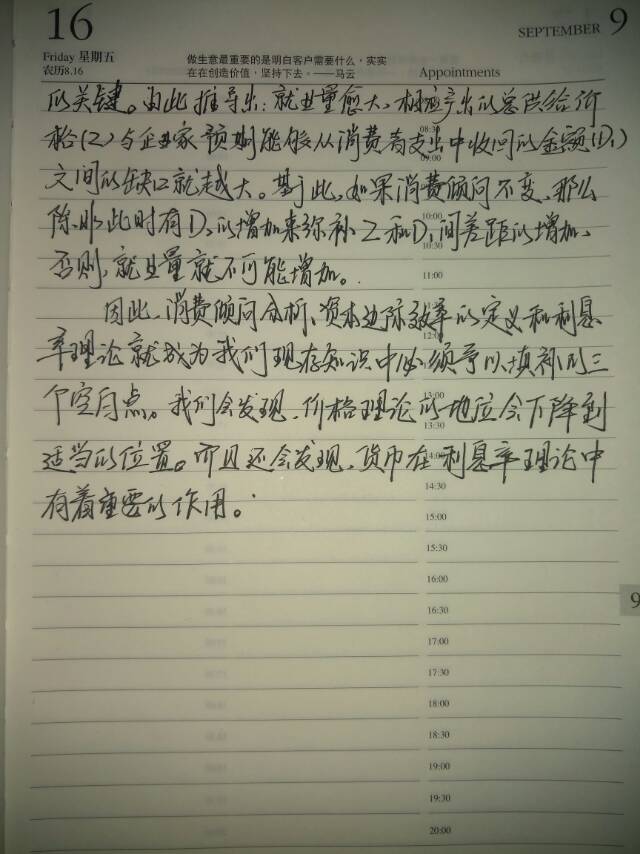 16
SEPTEMBER 9
Friday 星期五
农历8.16
做生意最重要的是明白客户需要什么，实实
在在创造价值，坚持下去。——马云
Appointments
的关键。由此推导出：就业量愈大，相应产出的总供给价
格(Z)与企业家预期能够从消费者支出中收回的金额(D₁)
之间的缺口就越大。基于此，如果消费倾向不变，那么
除非此时有D₂的增加来弥补Z和D₁间差距的增加，
否则，就业量就不可能增加。
因此，消费倾向分析、资本边际效率的定义和利息
率理论就成为我们现存知识中必须予以填补的三
个空白点。我们会发现，价格理论的地位会下降到
适当的位置。而且还会发现，货币在利息率理论中
有着重要的作用。
08:30
09:00
10:00
10:30
11:00
13:00
13:30
14:00
14:30
15:00
15:30
16:00
16:30
17:00
17:30
18:00
18:30
19:00
19:30
20:00
9